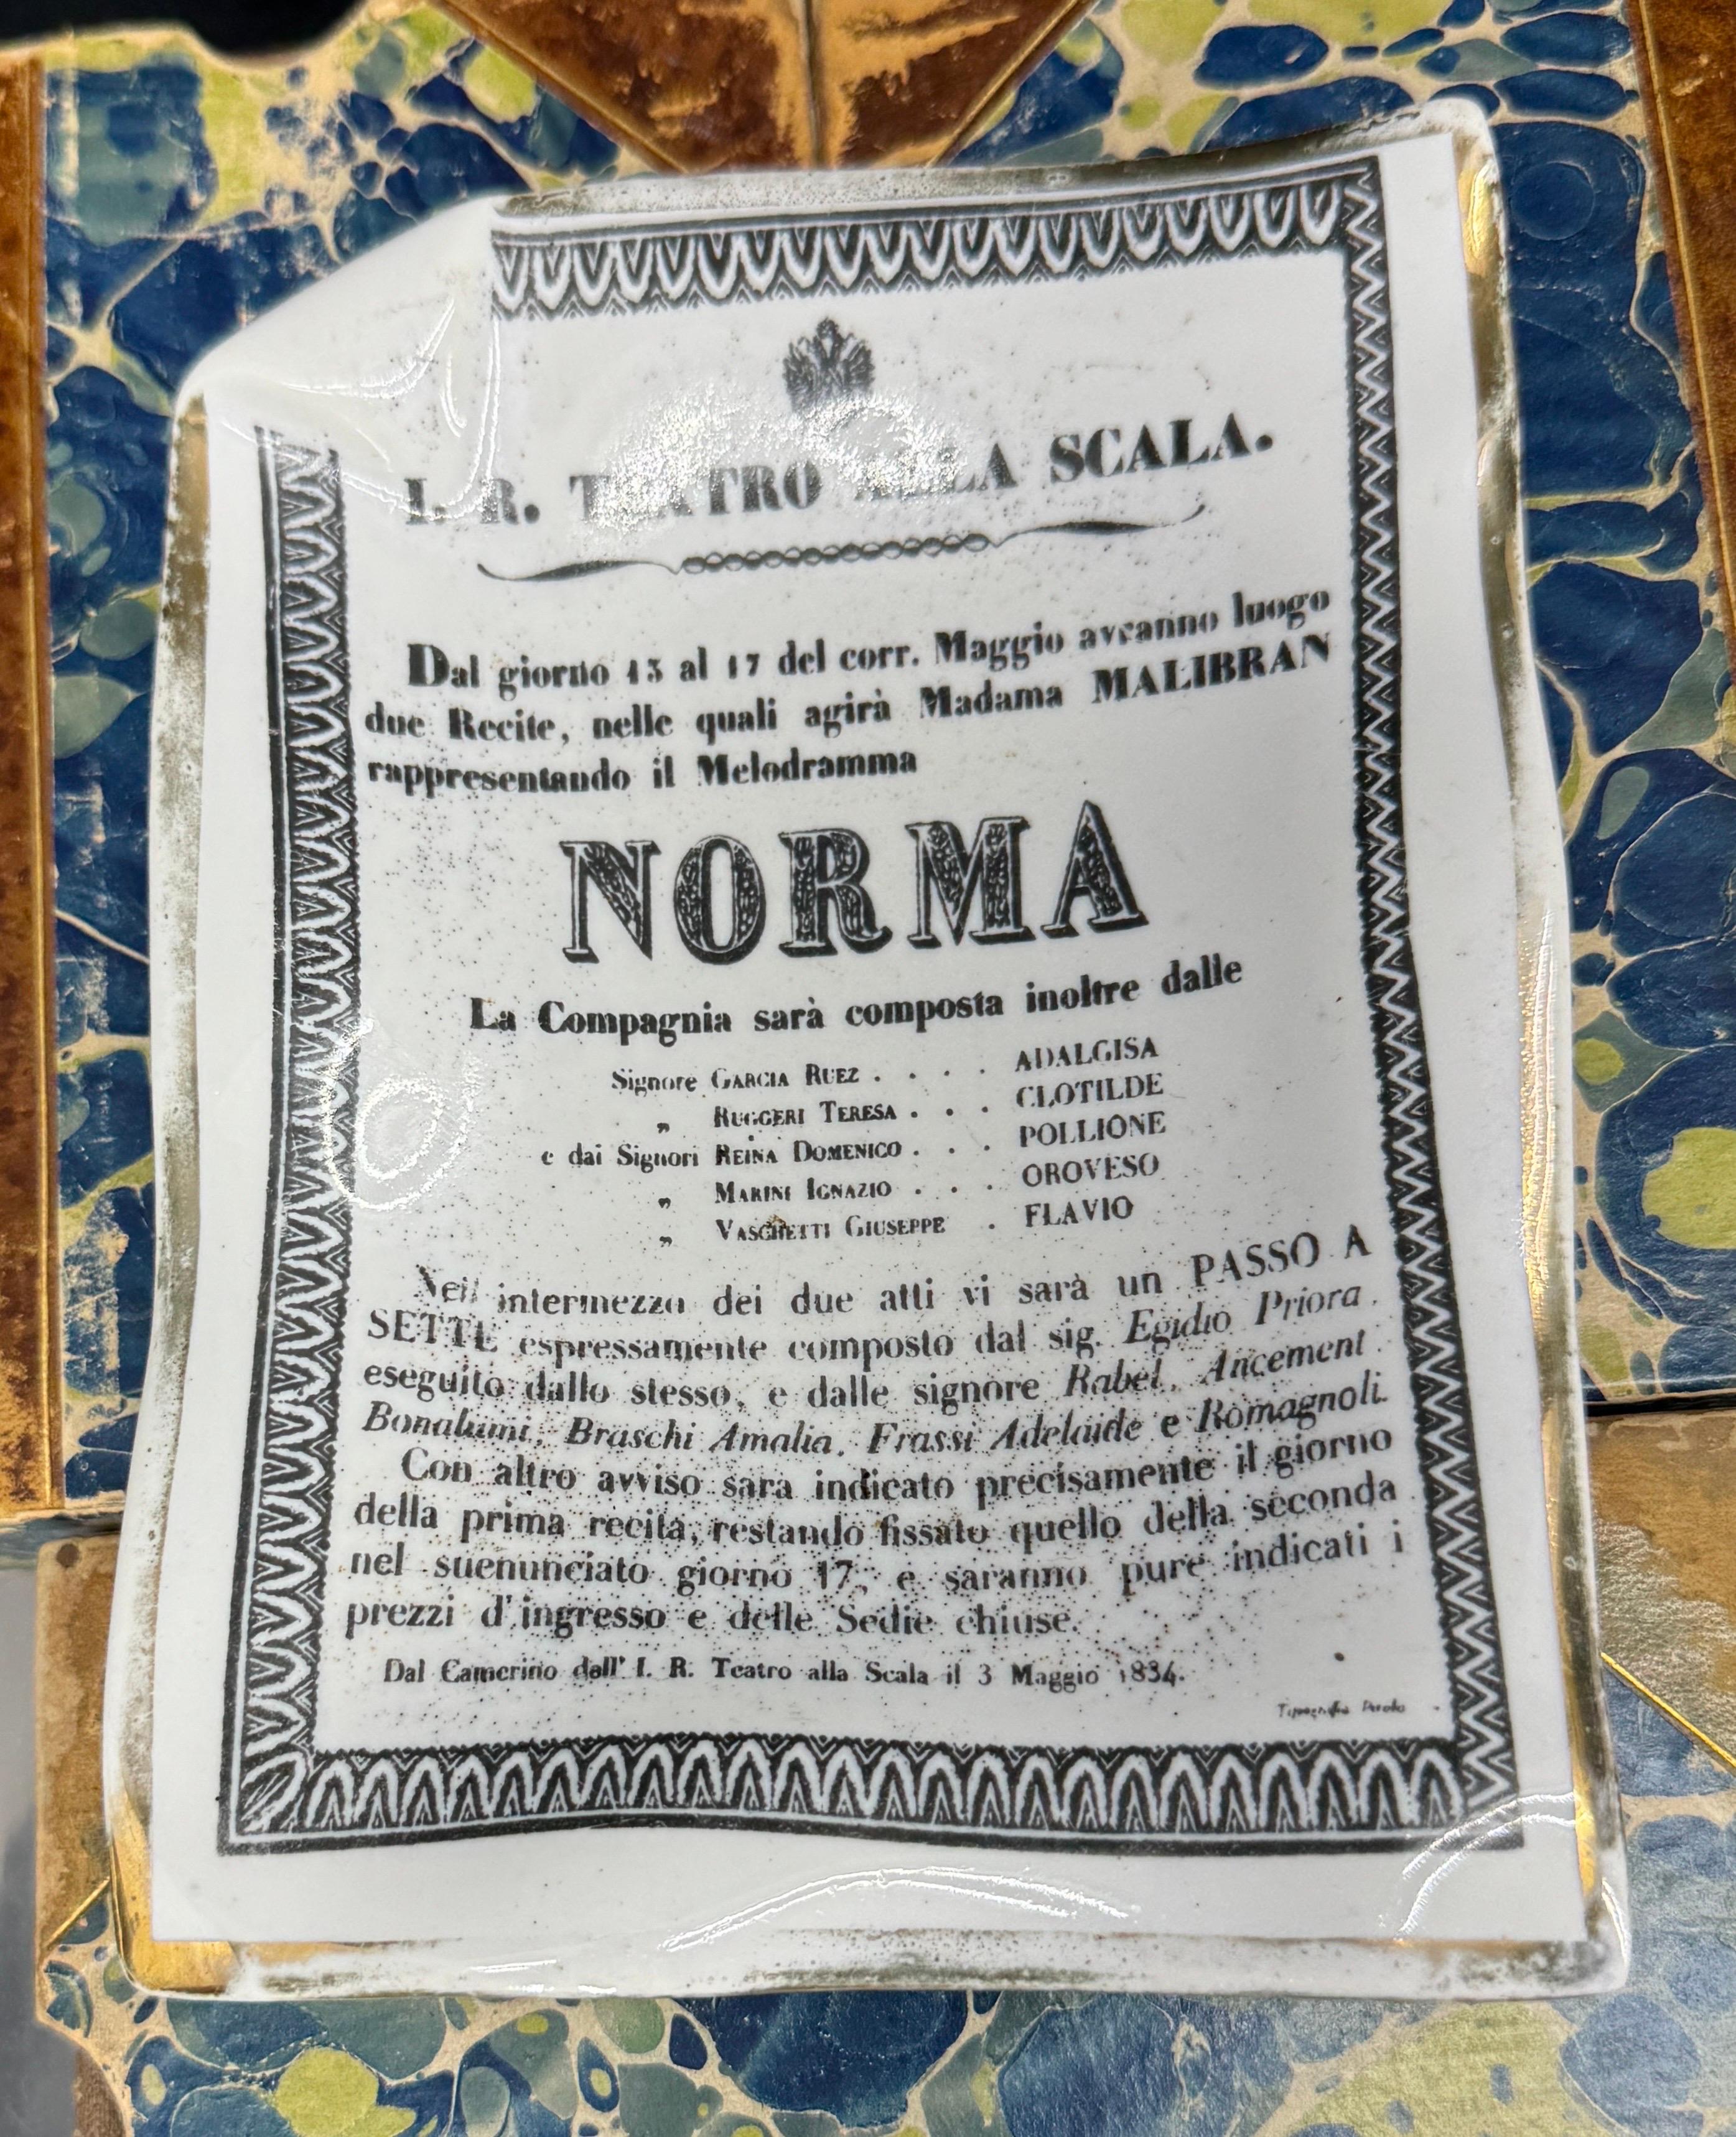 I. R. TEATRO ALLA SCALA.
Dal giorno 13 al 17 del corr. Maggio avranno luogo
due Recite, nelle quali agirà Madama MALIBRAN
rappresentando il Melodramma
NORMA
La Compagnia sarà composta inoltre dalle
Signore GARCIA RUEZ . . . . ADALGISA
„ RUGGERI TERESA . . . CLOTILDE
e dai Signori REINA DOMENICO . . . POLLIONE
„ MARINI IGNAZIO . . . OROVESO
„ VASCHETTI GIUSEPPE . FLAVIO
Nell' intermezzo dei due atti vi sarà un PASSO A
SETTE espressamente composto dal sig. Egidio Priora,
eseguito dallo stesso, e dalle signore Rabel, Ancement,
Bonalumi, Braschi Amalia, Frassi Adelaide e Romagnoli.
Con altro avviso sara indicato precisamente il giorno
della prima recita, restando fissato quello della seconda
nel suenunciato giorno 17, e saranno pure indicati i
prezzi d'ingresso e delle Sedie chiuse.
Dal Camerino dell' I. R. Teatro alla Scala il 3 Maggio 1834.
Tipografia